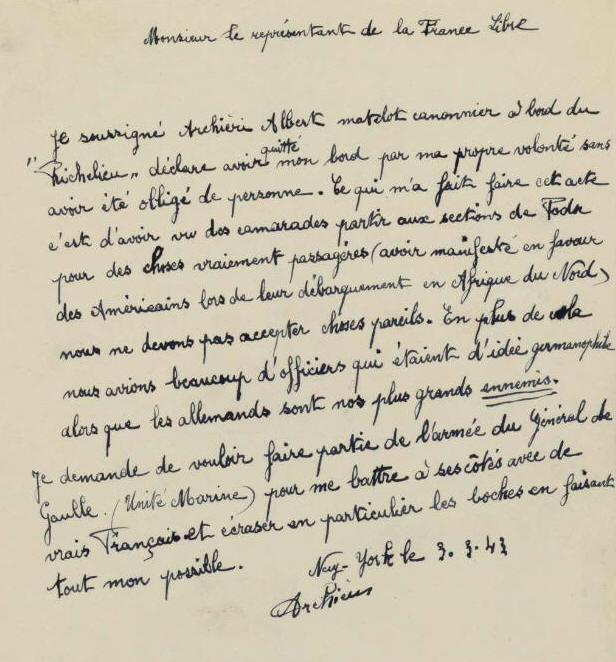 Monsieur le représentant de la France Libre
Je soussigné Archiéri Albert matelot canonnier à bord du
"Richelieu" déclare avoir quitté mon bord par ma propre volonté sans
avoir été obligé de personne. Ce qui m'a fait faire cet acte
c'est d'avoir vu des camarades partir aux sections de
pour des choses vraiement passagères (avoir manifesté en faveur
des Américains lors de leur débarquement en Afrique du Nord)
nous ne devons pas accepter choses pareils. En plus de cela
nous avions beaucoup d'officiers qui étaient d'idée germanophile
alors que les allemands sont nos plus grands ennemis.
Je demande de vouloir faire partie de l'armée du Général de
Gaulle. (Unité Marine) pour me battre à ses côtés avec de
vrais Français et écraser en particulier les boches en faisant
tout mon possible.
Ney-York le 3.3.43
Archiéri